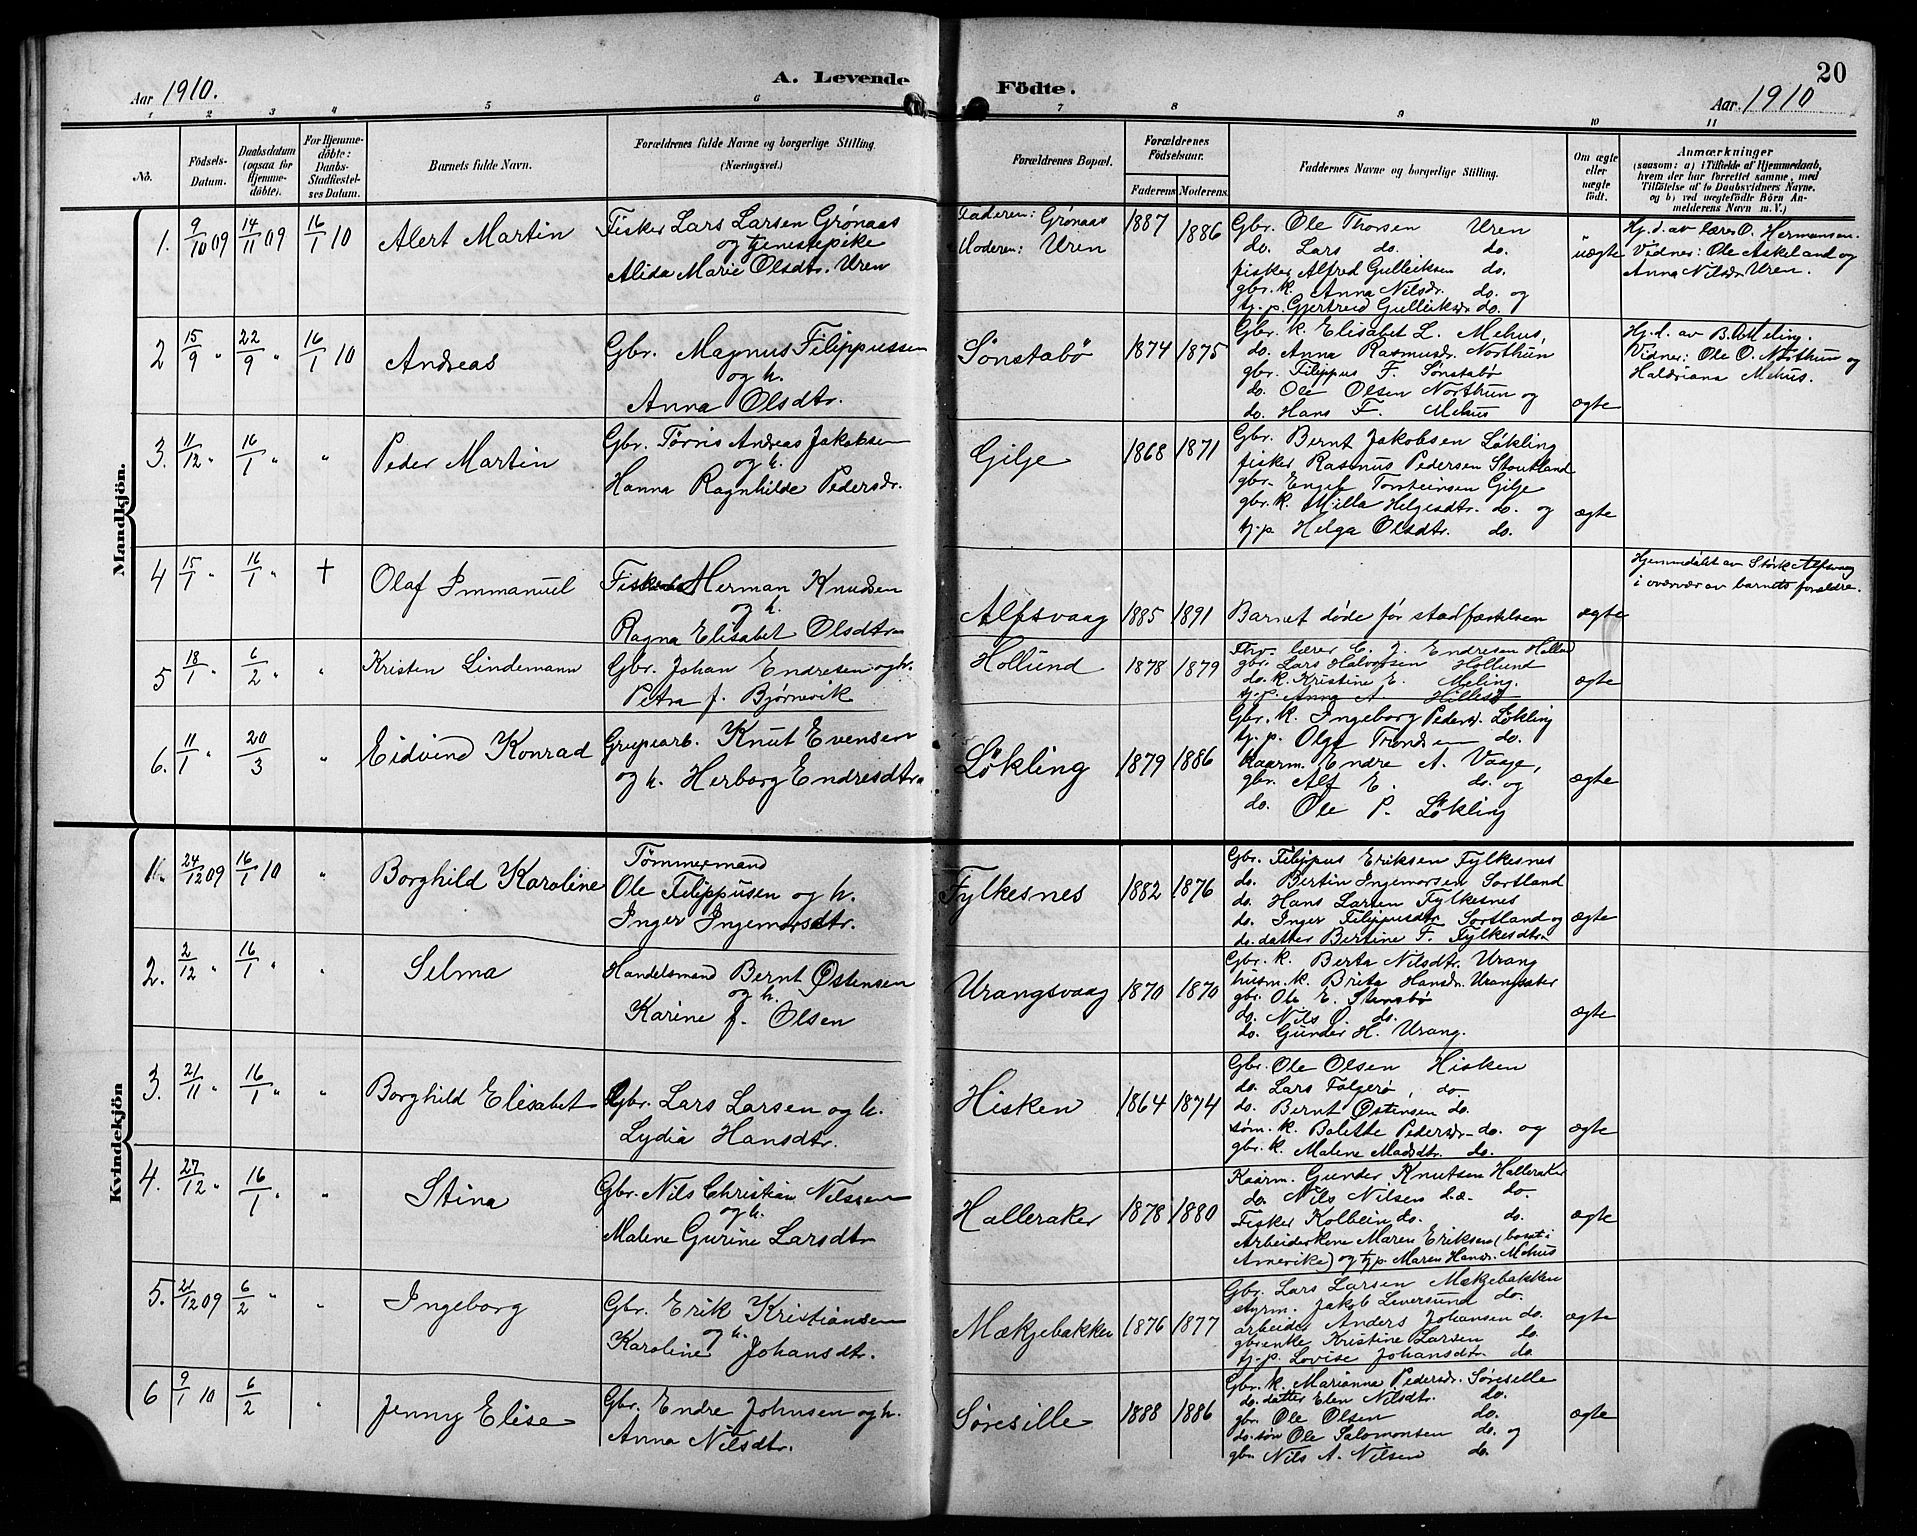 20
A. Levende Födte.
Aar 1910.
Aar 1910
1 2 3 4 5 6 7 8 9 10 11
No.
Födsels-Datum.
Daabsdatum (ogsaa for Hjemme-döbte).
For Hjemme-döbte: Daabs-Stadfæstel-ses Datum.
Barnets fulde Navn.
Forældrenes fulde Navne og borgerlige Stilling. (Næringsvei.)
Forældrenes Bopæl.
Forældrenes Födselsaar.
Faderens
Moderens.
Faddernes Navne og borgerlige Stilling.
Om ægte eller uægte födt.
Anmærkninger
(saasom: a) i Tilfælde af Hjemmedaab, hvem der har forrettet samme, med Tilföielse af to Daabsvidners Navne. og b) ved uægtefödte Börn An-melderens Navn m. V.)
Mandkjön.
1. 9/10 09 14/11 09 16/1 10 Alert Martin
Fisker Lars Larsen Grønaas
og tjenestepike
Alida Marie Olsdtr. Uren
Faderen: Grønaas
Moderen: Uren
1887 1886
Gbr. Ole Thorsen Uren
do. Lars do. do.
fisker Alfred Gulleiksen do.
gbr. k. Anna Nilsdr. do. og
tj.p. Gjertreid Gulleiksdr. do.
uægte
Hj.d. av lærer O. Hermansen.
Vidner: Ole Askeland og
Anna Nilsdr. Uren.
2 15/9 " 22/9 " 16/1 10 Andreas
Gbr. Magnus Filippussen
og h.
Anna Olsdtr.
Sønstabø 1874 1875
Gbr. k. Elisabet L. Mehus,
do. Anna Rasmusdr. Northun
gbr. Filippus F. Sønstabø
do. Ole Olsen Northun og
do. Hans F. Mehus
ægte
Hj.d. av B. O. Meling.
Vidner: Ole O. Northun og
Haldriana Mehus.
3. 11/12 " 16/1 " " Peder Martin
Gbr. Tørris Andreas Jakobsen
og h.
Hanna Ragnhilde Pedersdr.
Gilje 1868 1871
Gbr. Bernt Jakobsen Løkling
fisker Rasmus Pedersen Stoutland
gbr. Engel Torsteinsen Gilje
gbr. k. Milla Helgesdtr. do. og
tj.p Helga Olsdtr. do.
ægte
4 15/1 " 16/1 " † Olaf Immanuel
Fisker Herman Knudsen
og h.
Ragna Elisabet Olsdtr.
Alfsvaag 1885 1891 Barnet døde før stadfæstelsen ægte
Hjemmedøbt av Størk Alfsvaag
i overvær av barnets forældre.
5 18/1 " 6/2 " " Kristen Lindemann
Gbr. Johan Endresen og h.
Petra f. Bjørnevik
Hollund 1878 1879
lærer C. J. Endresen Hollund
gbr. Lars Halvorsen Hollund
do. k. Kristine E. Meling.
tj.p. Anna A. Hillestø
ægte
6. 11/1 " 20/3 " Eidvind Konrad
Grupearb. Knut Evensen
og h. Herborg Endresdtr.
Løkling 1879 1886
Gbr. k. Ingeborg Pedersd. Løkling
tj.p. Olga Trondsen do.
kaarm. Endre A. Vaage,
gbr. Alf E. do. og
do. Ole P. Løkling
ægte
Kvindekjön
1. 24/12 09 16/1 10 " Borghild Karoline
Tømmermand
Ole Filippusen og h.
Inger Ingemarsdtr.
Fylkesnes 1882 1876
Gbr. Filippus Eriksen Fylkesnes
do. Bertin Ingemarsen Sortland
do. Hans Larsen Fylkesnes
do. Inger Filippusdtr. Sortland og
do. datter Bertine F. Fylkesdtr.
ægte
2. 2/12 " 16/1 " " Selma
Handelsmand Bernt Østensen
og h.
Karine f. Olsen
Urangsvaag 1870 1870
Gbr. k. Berta Nilsdtr. Urang
husm. k. Brita Hansdr. Urangsater
gbr. Ole E. Stensbø
do. Nils O. do.
do. Gunder H. Urang.
ægte
3. 21/11 " 16/1 " " Borghild Elisabet
Gbr. Lars Larsen og h.
Lydia Hansdtr.
Hisken 1864 1874
Gbr. Ole Olsen Hisken
do. Lars Falgerø, do.
do. Bernt Østensen do.
søm. k. Bolette Pedersdr. do. og
gbr. k. Malene Madsdtr. do.
ægte
4. 27/12 " 16/1 " " Stina
Gbr. Nils Christian Nilssen
og h.
Malene Gurine Larsdtr
Halleraker 1878 1880
Kaarm. Gunder Knutsen Halleraker
do. Nils Nilsen d.æ. do.
Fisker Kolbein do. do.
Arbeiderkone Maren Eriksen (bosat i
Amerika) og tj.p. Maren Hansdr. Mehus
ægte
5. 21/12 09 6/2 " " Ingeborg
Gbr. Erik Kristiansen
og h.
Karoline Johansdtr.
Mækjebakken 1876 1877
Gbr. Lars Larsen Mækjebakken
styrm. Jakob Leversund do.
arbeider Anders Johansen do.
gbrenke Kristine Larsen do.
tj.p. Lovise Johansdtr. do.
ægte
6 9/1 10 6/2 " Jenny Elise
Gbr. Endre Johnsen og h.
Anna Nilsdtr.
Søresille 1888 1886
Gbr. k. Marianna Pedersdr. Søresille
do. datter Elen Nilsdtr. do.
gbr. Ole Olsen do.
do. søn Ole Salomonsen do. og
gbr. Nils A. Nilsen do.
ægte